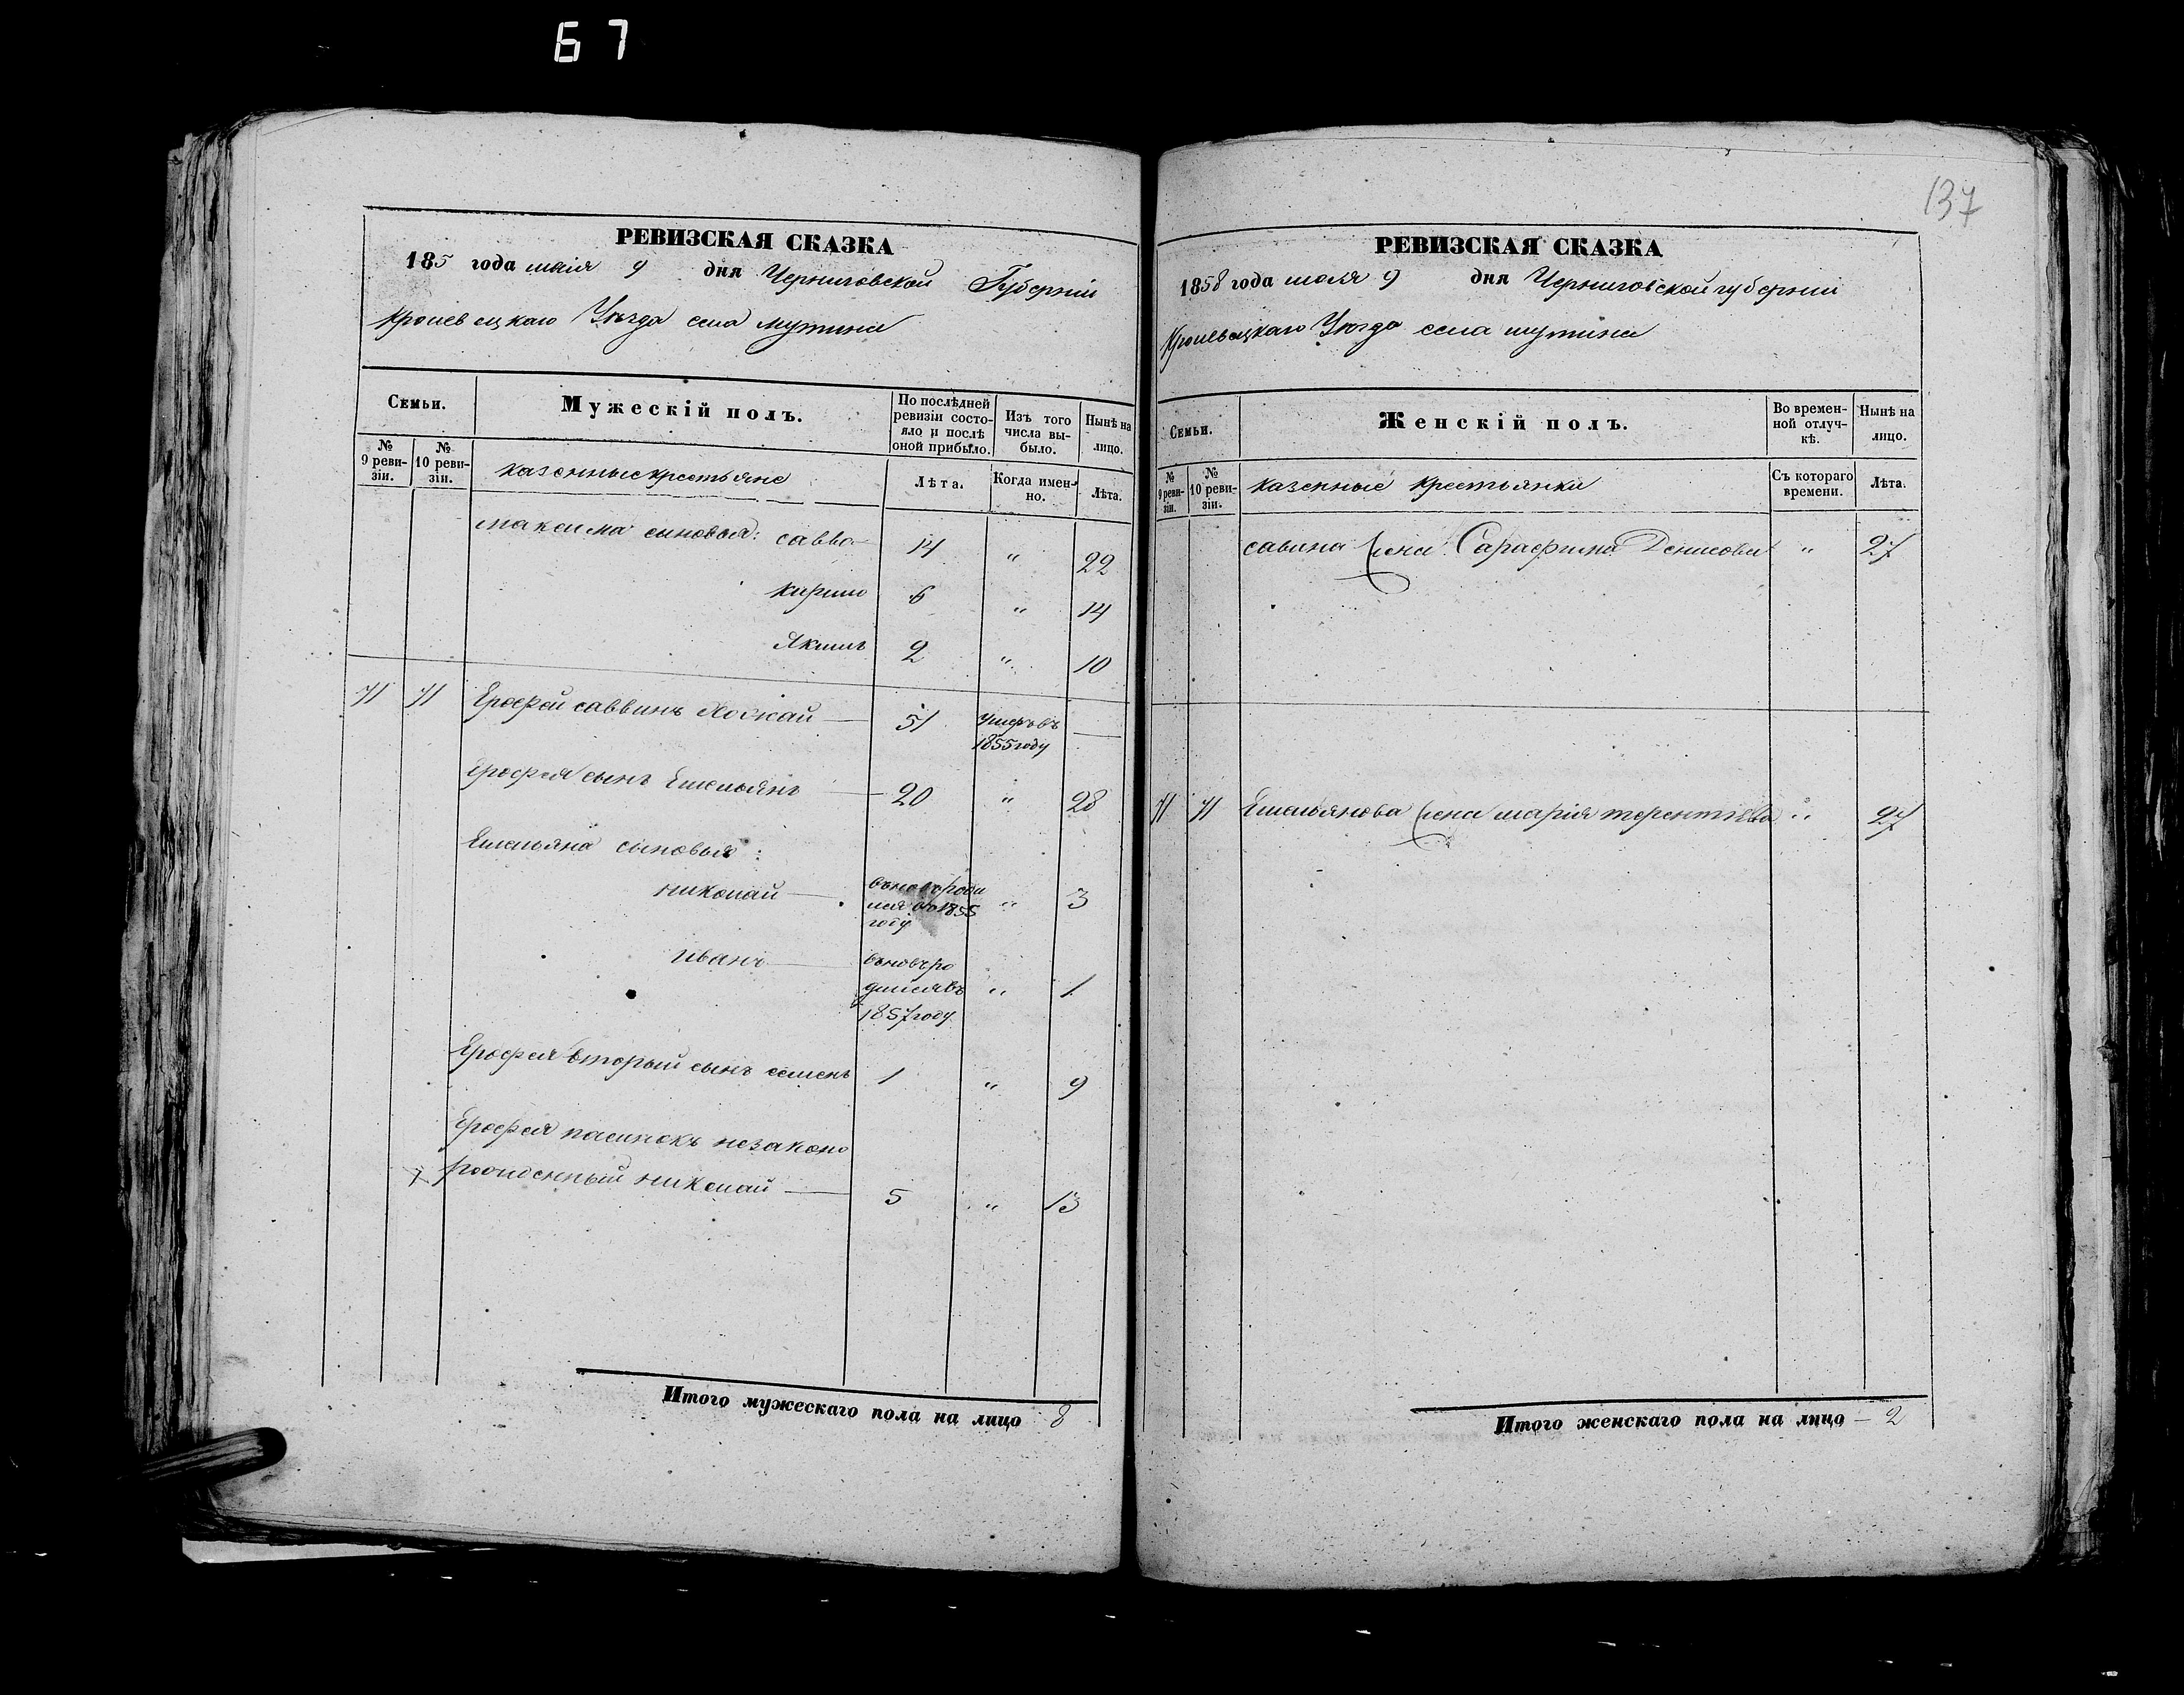 67
РЕВИЗСКАЯ СКАЗКА
185 года маія 9 дня Черниговской Губерніи
Кролевецкаго Уѣзда села мутина
Семьи.
Мужескій полъ.
По послѣдней ревизіи состояло и послѣ оной прибыло.
Изъ того числа выбыло.
Нынѣ на лицо.
№ 9 ревизіи.
№ 10 ревизіи.
казенные крестьяне
Лѣта.
Когда именно.
Лѣта.
максима сыновья: савва 14 " 22
кирило 6 " 14
Якимъ 2 " 10
71 71 Ерофей саввинъ 51 умеръ въ
1855 году
Ерофея сынъ Емельянъ 20 " 28
Емельяна сыновья:
николай вновь роди
лся въ 1855 " 3
году
иванъ вновь ро
дился въ " 1
1857 году
Ерофея вторый сынъ семенъ 1 " 9
Ерофея пасинокъ незаконо
рожденный николай 5 " 13
Итого мужескаго пола на лицо 8
137
РЕВИЗСКАЯ СКАЗКА
1858 года маія 9 дня Черниговской губерніи
Кролевецкаго Уѣзда села мутина
Семьи.
Женскій полъ.
Во временной отлучкѣ.
Нынѣ на лицо.
№ 9 ревизіи.
№ 10 ревизіи.
казенные крестьянки
Съ котораго времени.
Лѣта.
савина жена Сарафина Денисова " 27
71 71 Емельянова жена марія терентіева " 27
Итого женскаго пола на лицо – 2